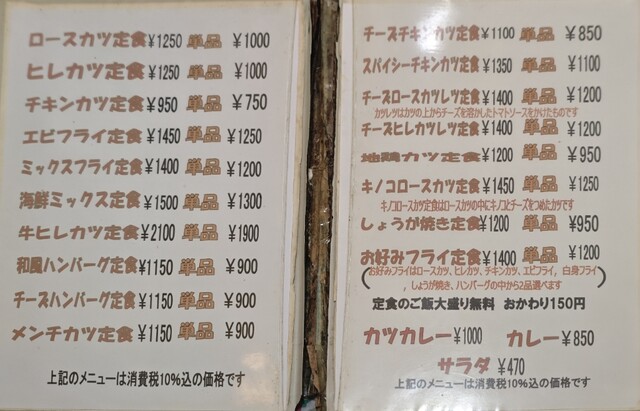 ロースカツ定食¥1250 単品 ¥1000
ヒレカツ定食¥1250 単品 ¥1000
チキンカツ定食¥950 単品 ¥750
エビフライ定食¥1450 単品 ¥1250
ミックスフライ定食¥1400 単品 ¥1200
海鮮ミックス定食¥1500 単品 ¥1300
牛ヒレカツ定食¥2100 単品 ¥1900
和風ハンバーグ定食¥1150 単品 ¥900
チーズハンバーグ定食¥1150 単品 ¥900
メンチカツ定食¥1150 単品 ¥900
上記のメニューは消費税10%込の価格です
チーズチキンカツ定食¥1100 単品 ¥850
スパイシーチキンカツ定食¥1350 単品 ¥1100
チーズロースカツレツ定食¥1400 単品 ¥1200
カツレツはカツの上からチーズを溶かしたトマトソースをかけたものです
チーズヒレカツレツ定食¥1400 単品 ¥1200
地鶏カツ定食¥1200 単品 ¥950
キノコロースカツ定食¥1450 単品 ¥1250
キノコロースカツ定食はロースカツの中にキノコとチーズをつめたカツです
しょうが焼き定食¥1200 単品 ¥950
お好みフライ定食¥1400 単品 ¥1200
(お好みフライはロースカツ、ヒレカツ、チキンカツ、エビフライ、白身フライ
、しょうが焼き、ハンバーグの中から2品選べます)
定食のご飯大盛り無料 おかわり150円
カツカレー¥1000 カレー¥850
サラダ ¥470
上記のメニューは消費税10%込の価格です